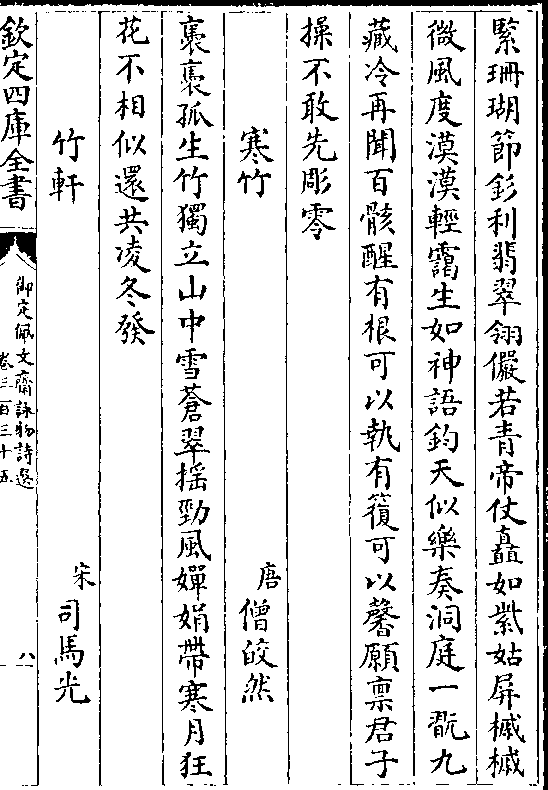 緊珊瑚節釤利翡翠翎儼若青帝仗矗如紫姑屏槭槭
微風度漠漠輕靄生如神語鈞天似樂奏洞庭一翫九
藏冷再聞百骸醒有根可以執有箙可以馨願禀君子
操不敢先彫零
寒竹
唐僧皎然
裊裊孤生竹獨立山中雪蒼翠揺勁風嬋娟帶寒月狂
花不相似還共凌冬發
竹軒
宋司馬光
欽定四庫全書
御定佩文齋詠物詩選
卷三百三十五
八